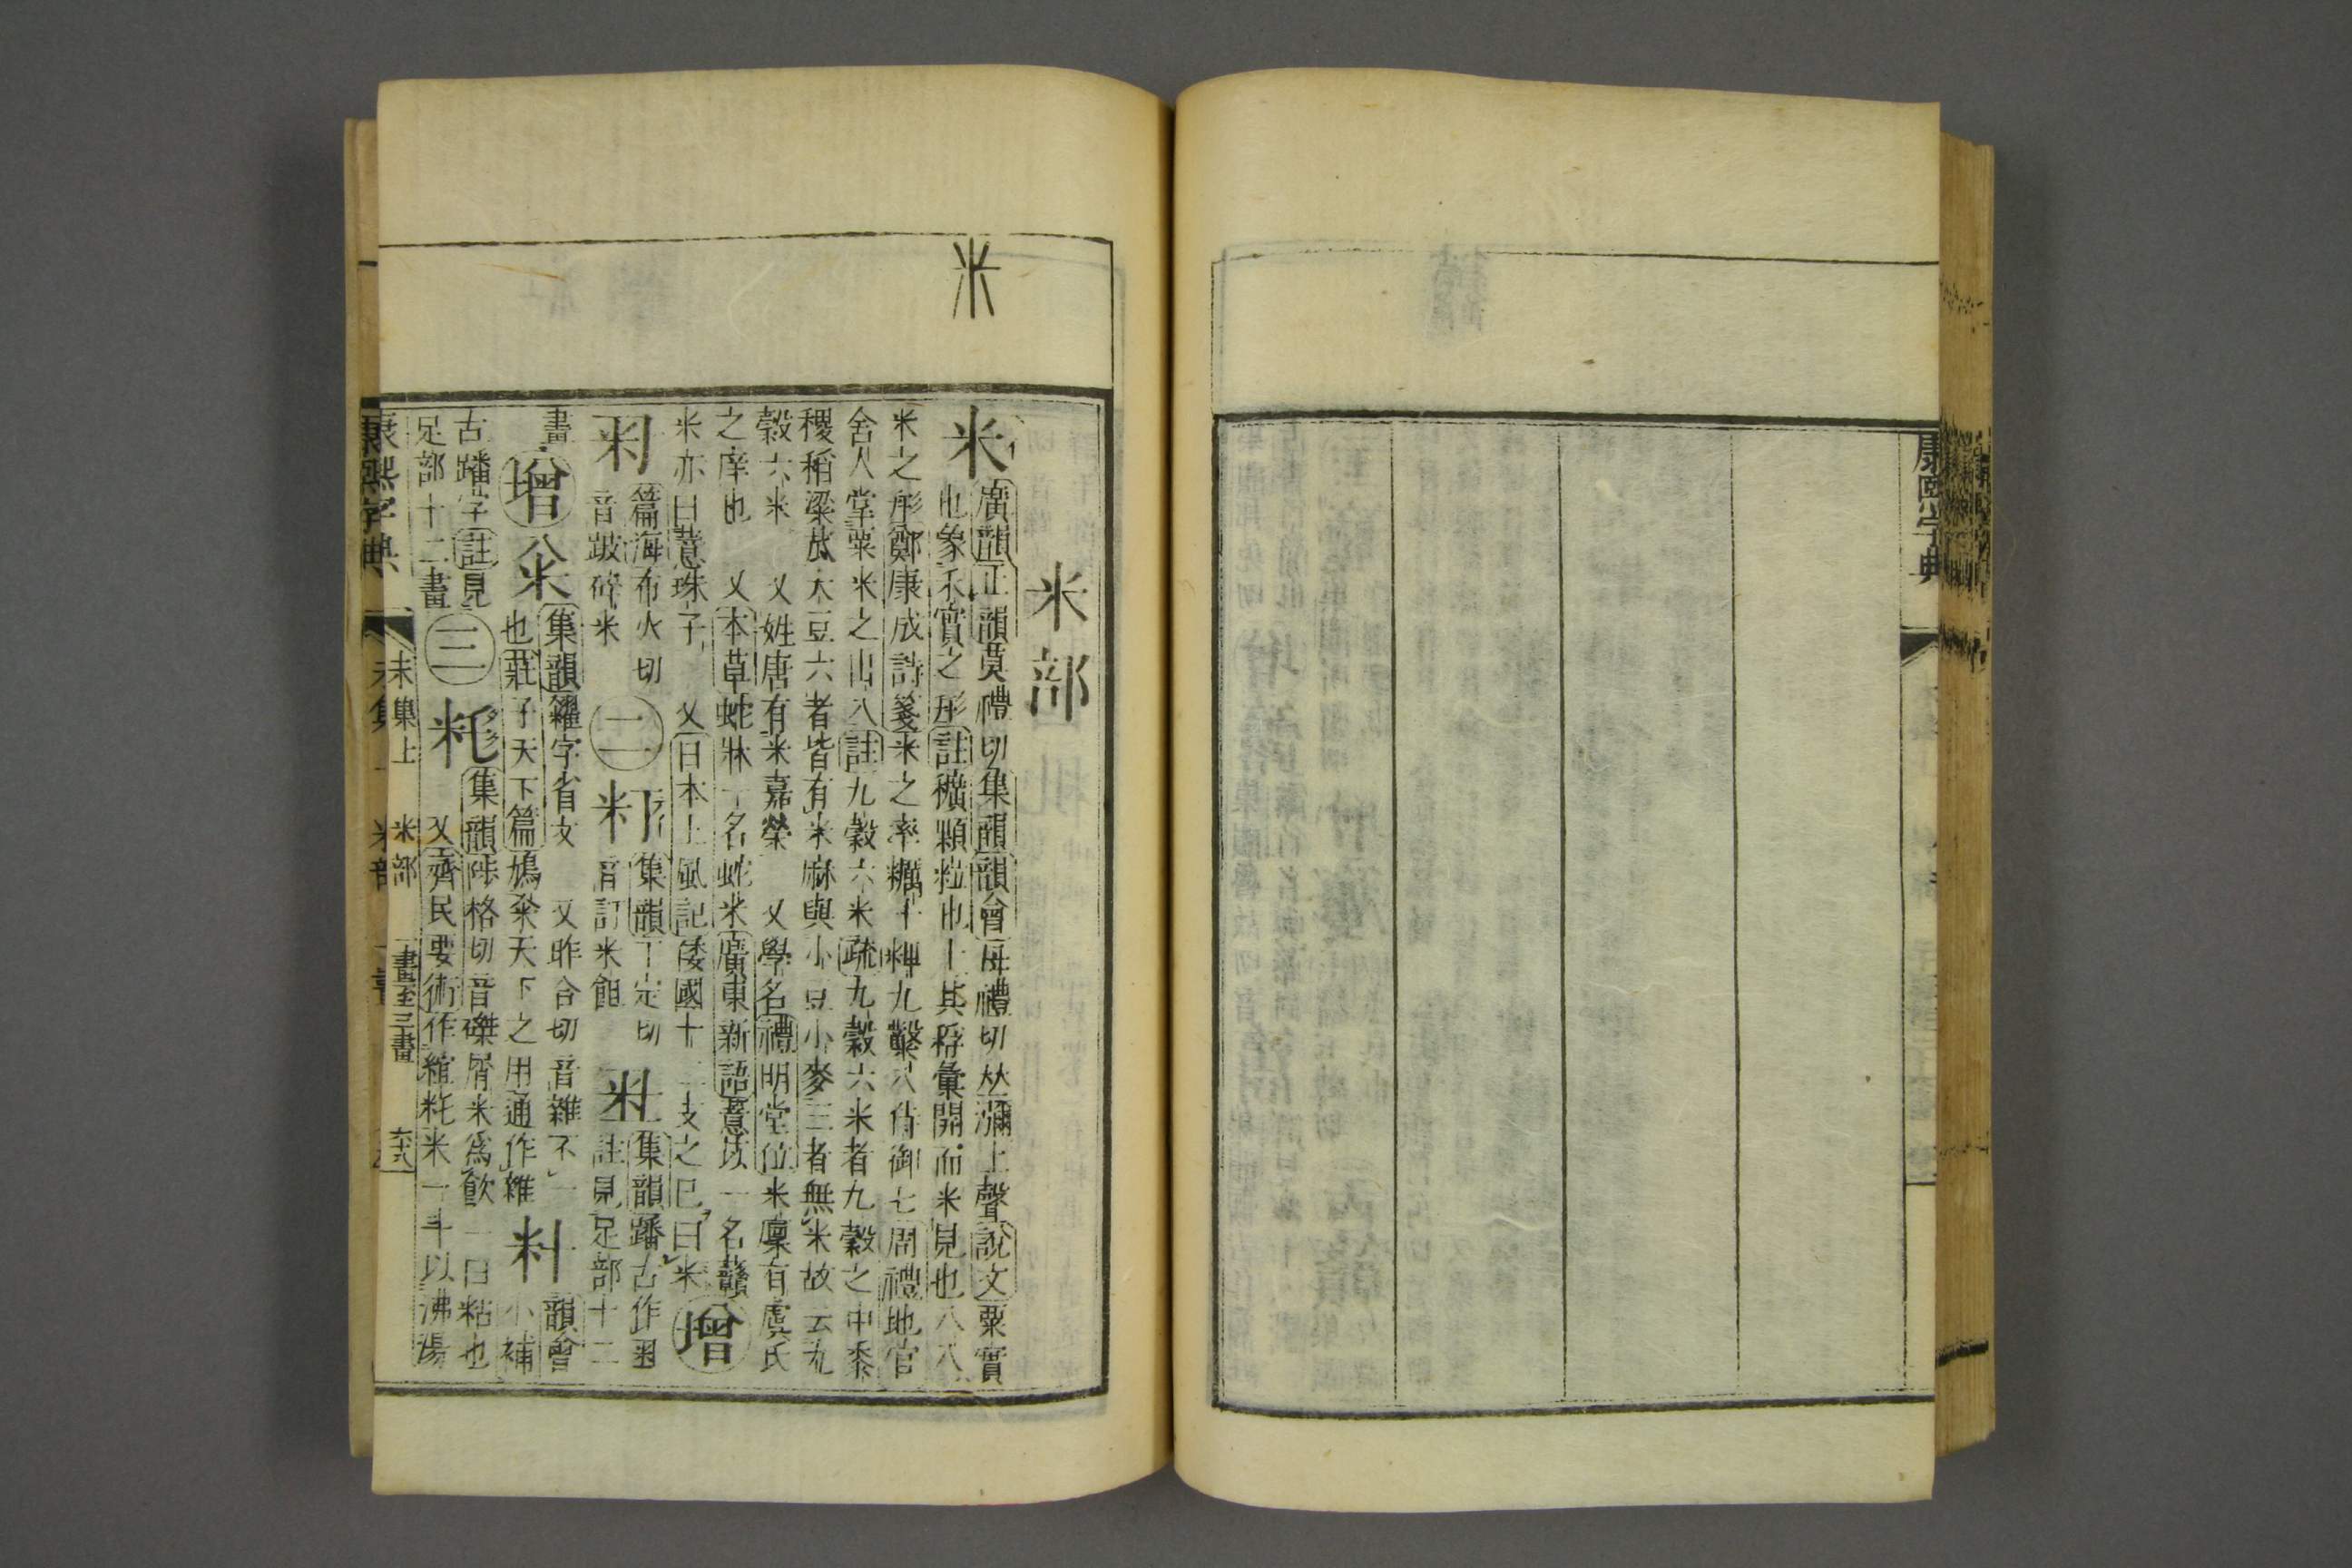 康熙字典
米
米部
米
廣韻正韻莫禮切集韻韻會母禮切𠀤瀰上聲說文粟實
也象禾實之形註穬顆粒也十其稃彙開而米見也八八
米之形鄭康成詩箋米之率糲十粺九鑿八侍御七周禮地官
舍人掌粟米之出入註九穀六米疏九穀六米者九穀之中黍
稷稻粱苽大豆六者皆有米麻與小豆小麥三者無米故云九
穀六米 又姓唐有米嘉榮 又學名禮明堂位米廩有虞氏
之庠也 又本草蛇牀一名蛇米廣東新語薏苡一名䕪
米亦曰薏珠子 又日本土風記倭國十二支之巳曰米 增
篇海布火切
音跛碎米
二
集韻丁定切
音訂米餖
集韻蹯古作𥸨
註見足部十二
畫 增 籴 集韻糴字省文 又昨合切音雜不一
也莊子天下篇鳩籴天下之用通作雜 料 韻會
小補
古蹯字註見
足部十二畫
三
粍
集韻陟格切音磔屑米爲飮一曰粘也
又齊民要術作䊐粍米一斗以沸湯
康熙字典 未集上 米部 畫至三畫 六八